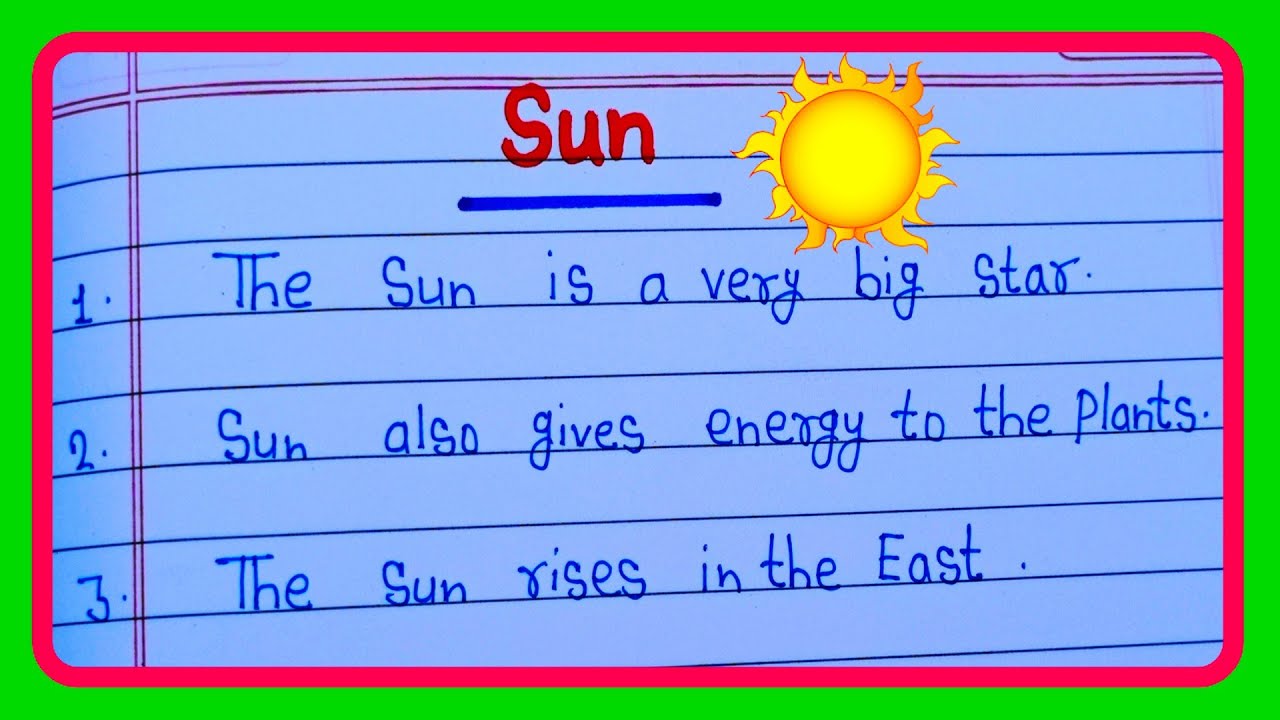 Sun
1. The Sun is a very big star.
2. Sun also gives energy to the Plants.
3. The Sun rises in the East.